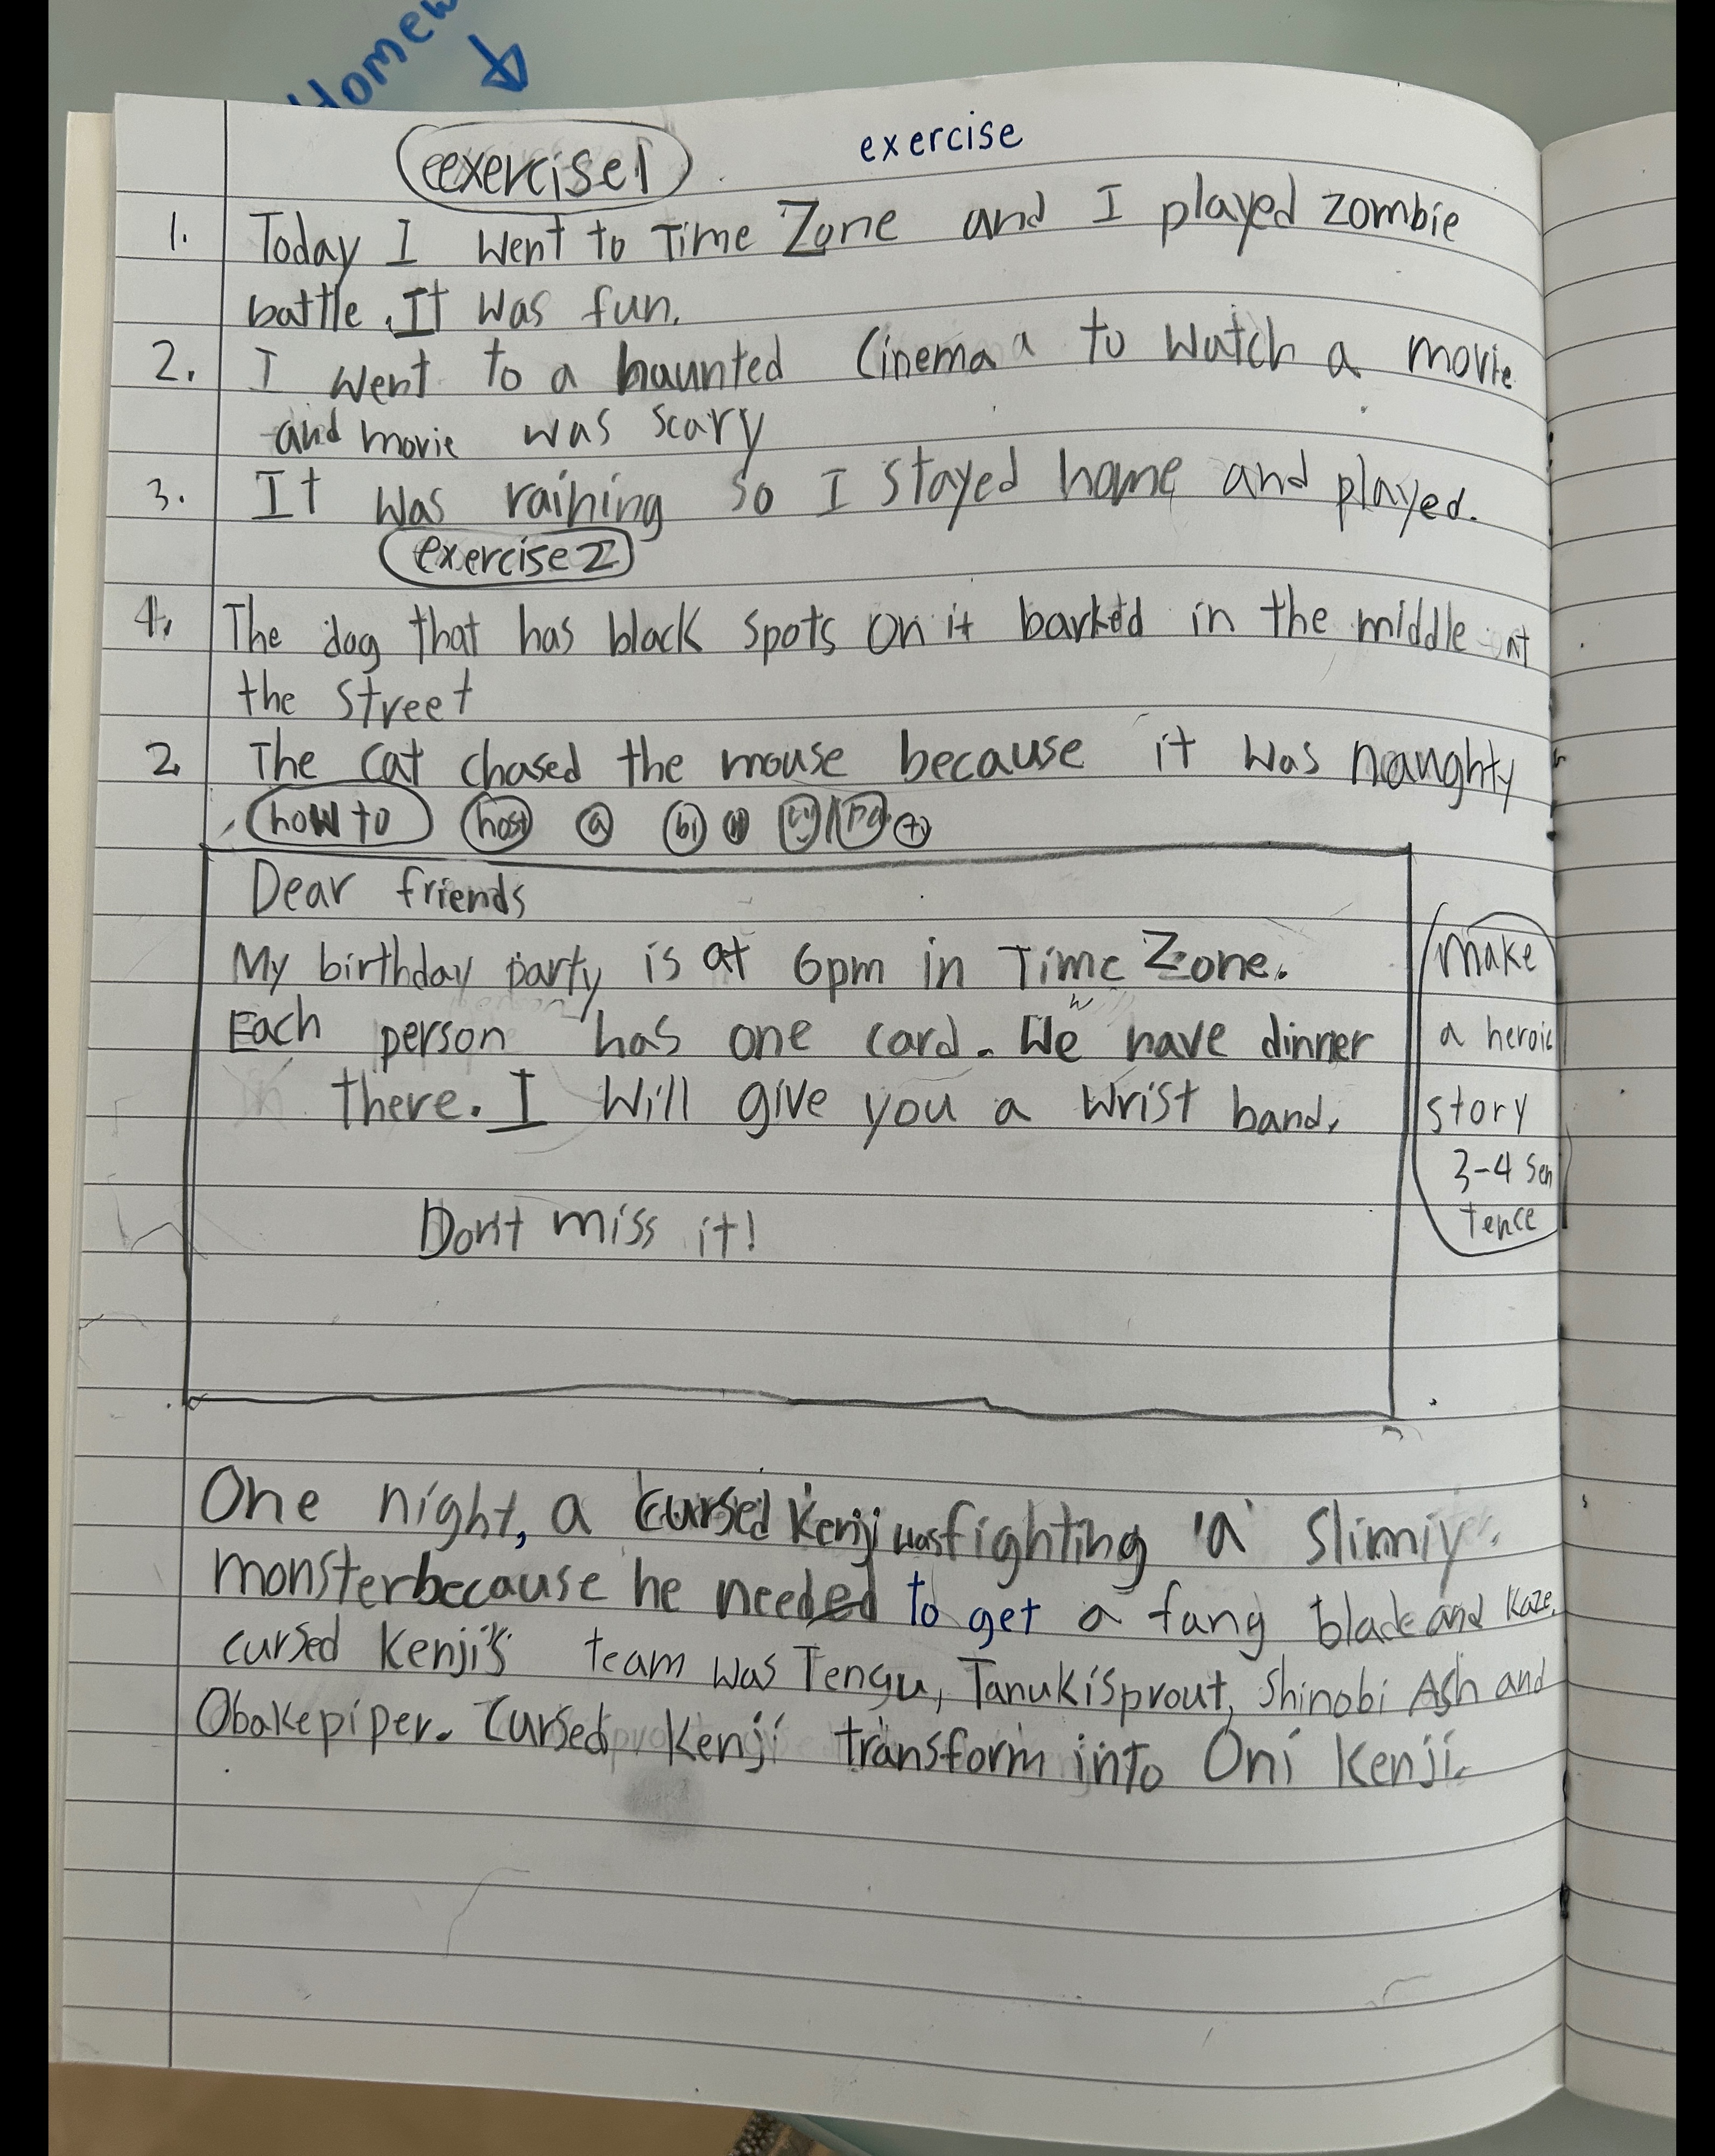 Home
exercise1 exercise
1. Today I went to Time Zone and I played zombie
battle. It was fun.
2. I went to a haunted Cinema a to watch a movie
and movie was scary
3. It was raining so I stayed home and played.
exercise2
1. The dog that has black spots on it barked in the middle at
the street
2. The cat chased the mouse because it was naughty
how to host a bi
Dear friends
My birthday party is at 6pm in Time Zone.
Each person has one card. We have dinner
there. I will give you a wrist band.
Don't miss it!
make
a heroic
story
3-4 sen
tence
One night, a cursed Kenji was fighting a slimiy
monster because he needed to get a fang blade and Kaze.
cursed Kenji's team was Tengu, Tanukisprout, Shinobi Ash and
Obakepiper. Cursed Kenji transform into Oni Kenji.